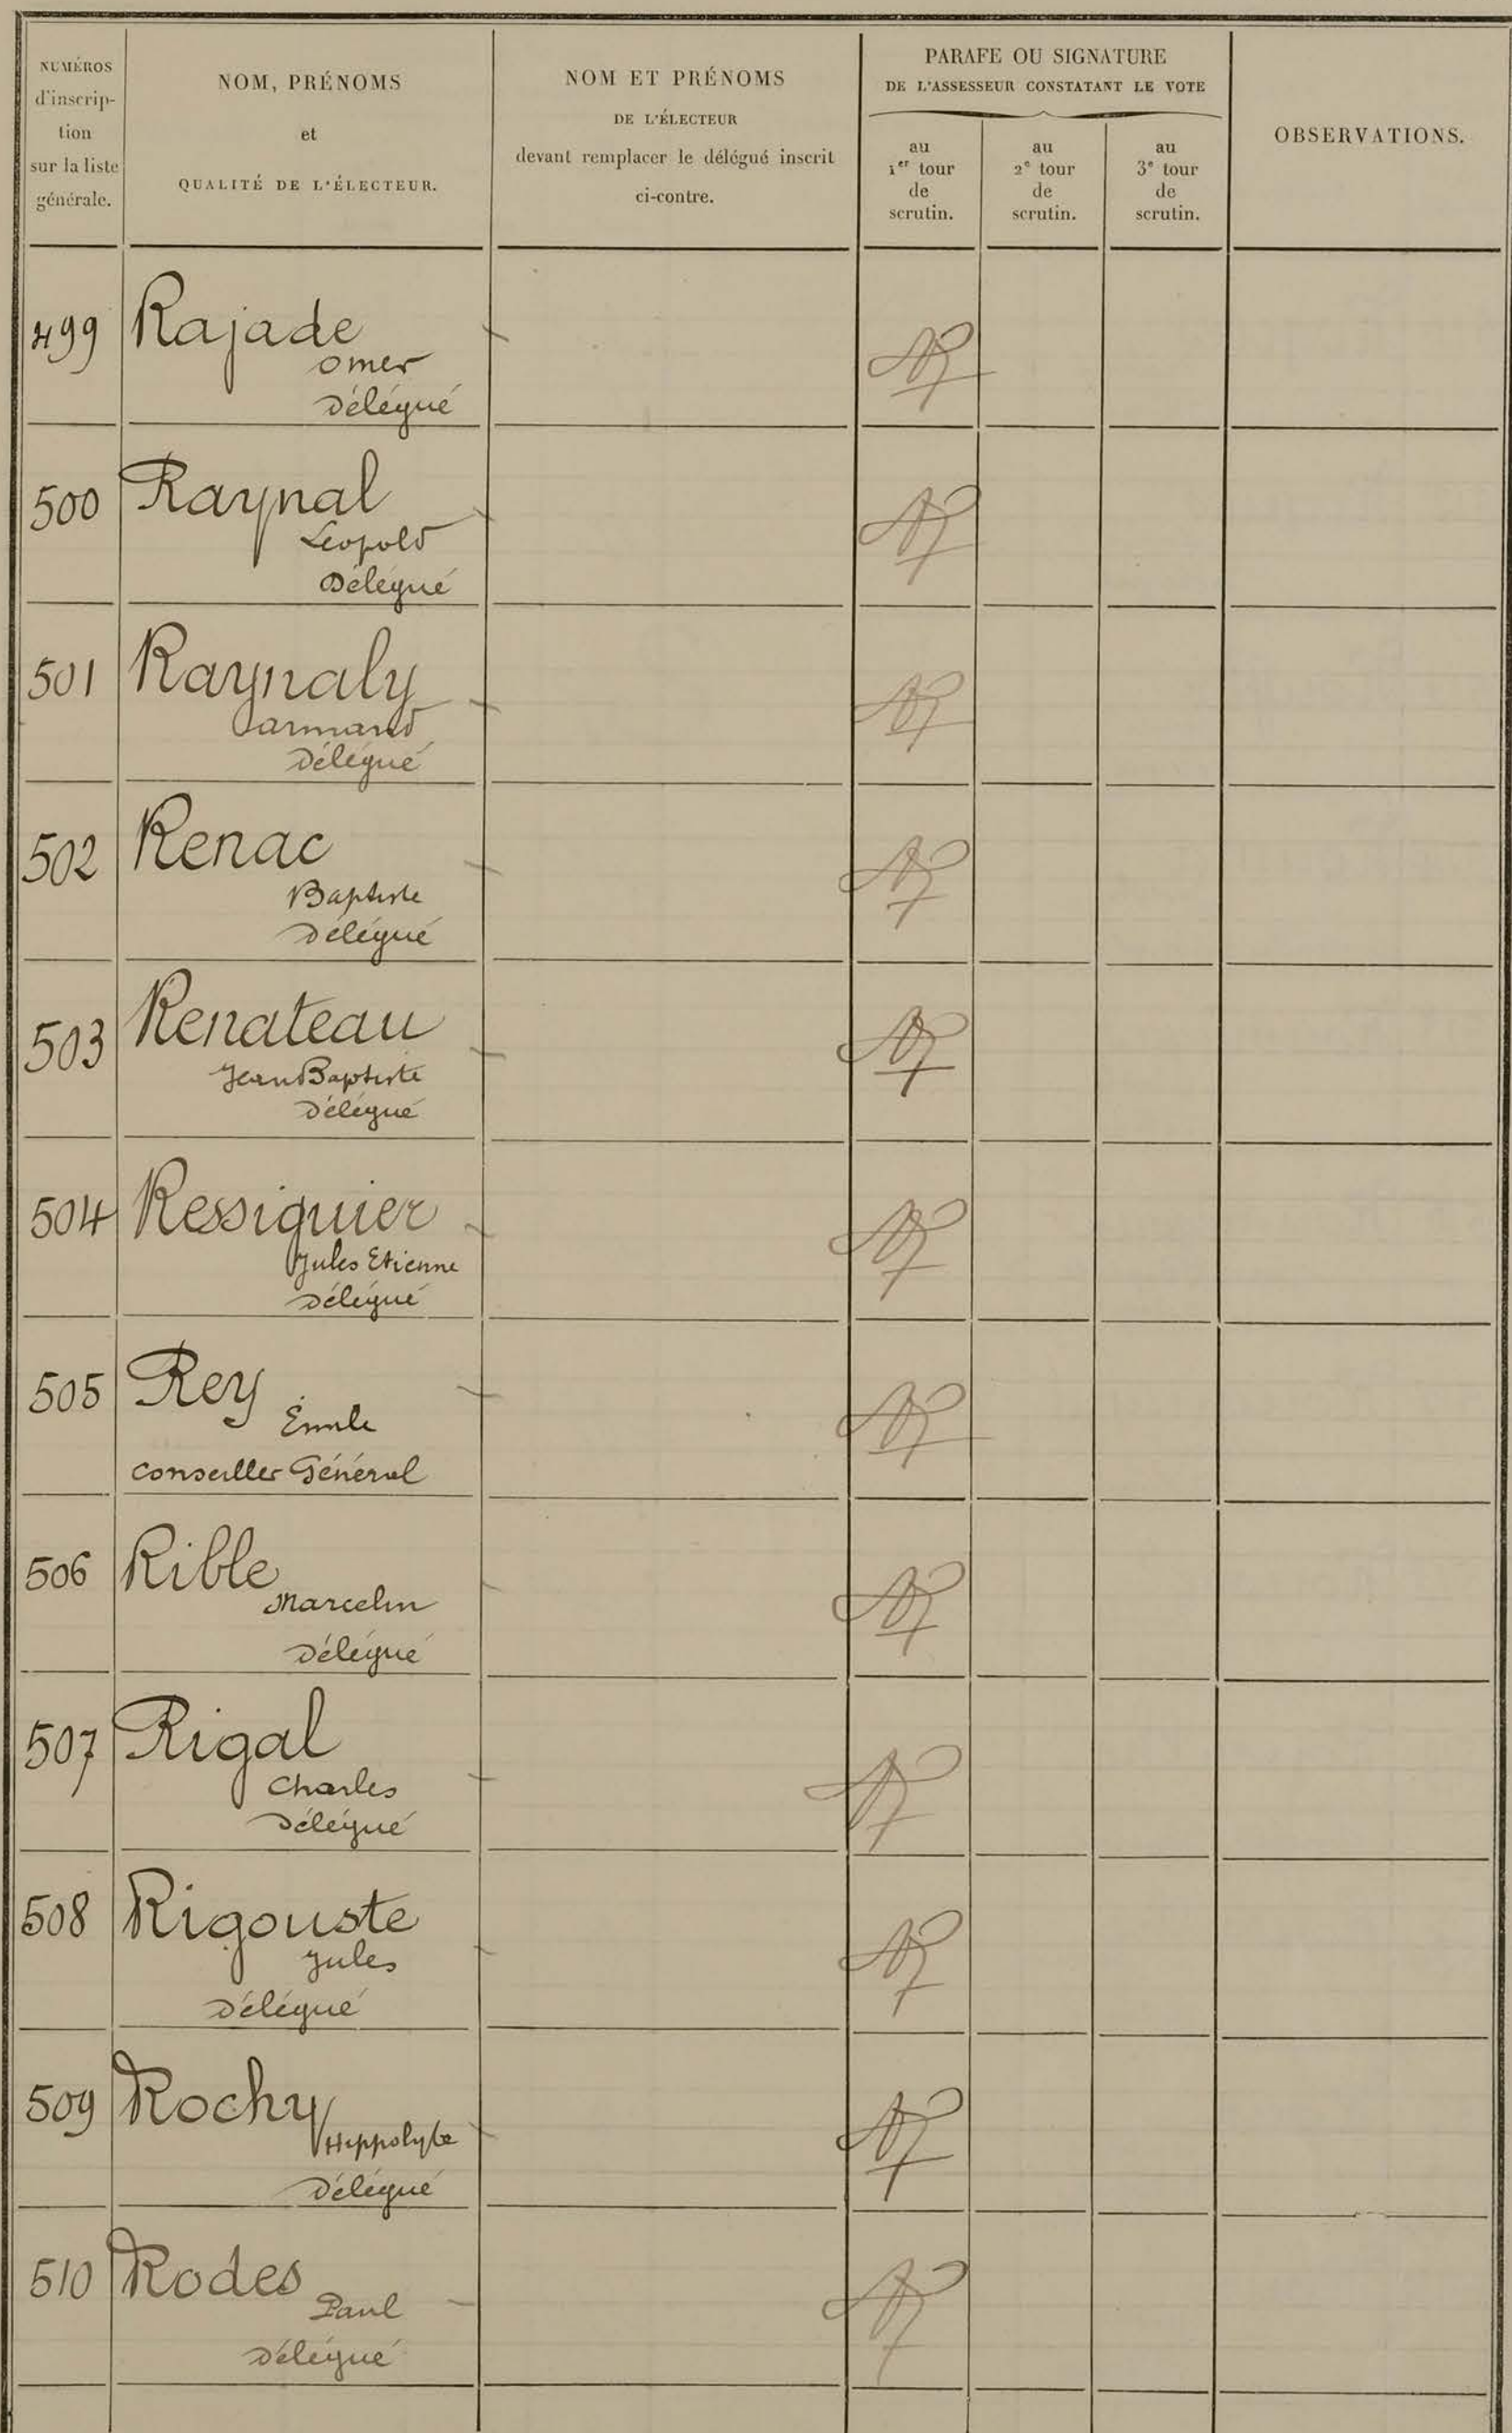 NUMÉROS
d'inscrip-
tion
sur la liste
générale.
NOM, PRÉNOMS
et
QUALITÉ DE L'ÉLECTEUR.
NOM ET PRÉNOMS
DE L'ÉLECTEUR
devant remplacer le délégué inscrit
ci-contre.
PARAFE OU SIGNATURE
DE L'ASSESSEUR CONSTATANT LE VOTE
au
1er tour
de
scrutin.
au
2e tour
de
scrutin.
au
3e tour
de
scrutin.
OBSERVATIONS.
499 Rajade
Omer
Délégué
500 Raynal
Léopold
Délégué
501 Raynaly
armand
Délégué
502 Renac
Baptiste
Délégué
503 Renateau
Jean Baptiste
Délégué
504 Ressiguier
Jules Etienne
Délégué
505 Rey
Émile
Conseiller Général
506 Rible
Marcelin
Délégué
507 Rigal
Charles
Délégué
508 Rigouste
Jules
Délégué
509 Rochy
Hippolyte
Délégué
510 Rodes
Paul
Délégué